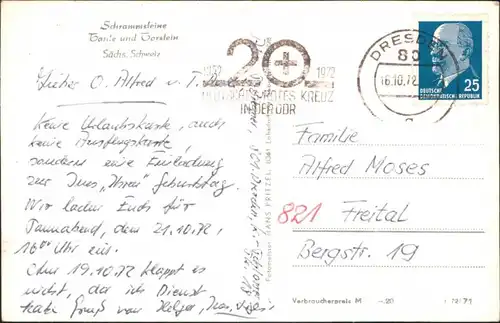 Schrammsteine
Tante und Torstein
Sächs. Schweiz
Lieber O. Alfred u. T.
Keine Urlaubskarte, auch
keine Ausflugskarte,
sondern eine Einladung
zu Ines "Ihren" Geburtstag.
Wir laden Euch für
Sonnabend, den 21.10.72,
16⁰⁰ Uhr ein.
Am 19.10.72 klappt es
nicht, da ich Dienst
habe. Gruß von Holger, Ines,
1952 20 1972
ROTES KREUZ
IN DER DDR
DRESDEN
80
16.10.72
DEUTSCHE
DEMOKRATISCHE REPUBLIK
25
Familie
Alfred Moses
821 Freital
Bergstr. 19
HANS PRITZEL
Verbraucherpreis M -.20